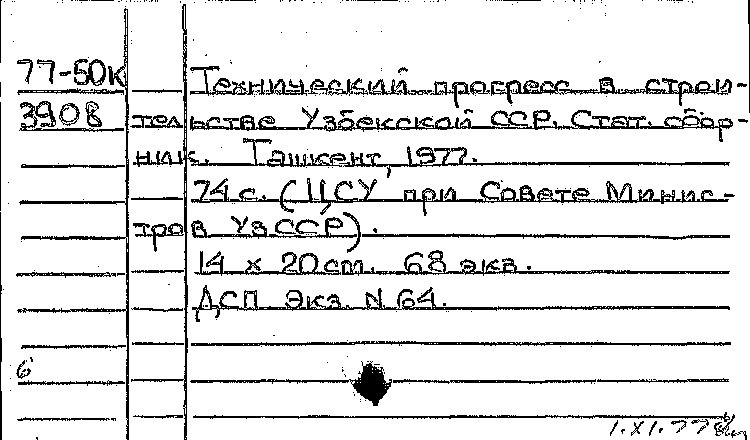 77-50к Технический прогресс в строи-
3908 тельстве Узбекской ССР. Стат. сбор-
ник. Ташкент, 1977.
74 с. (ЦСУ при Совете Минис-
тров УзССР).
14 х 20 cm. 68 экз.
ДСП Экз. N 64.
6
1.XI.77